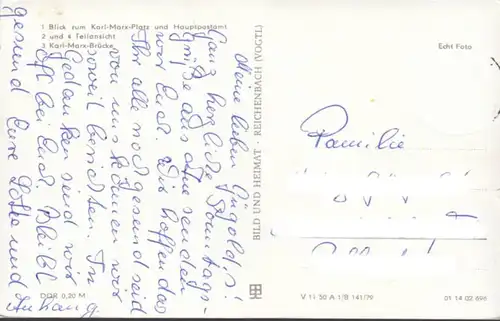 1 Blick zum Karl-Marx-Platz und Hauptpostamt
2 und 4 Teilansicht
3 Karl-Marx-Brücke
Meine lieben Jügold's!
Ganz herzliche Sonntags-
grüße aus senden
wir Euch. Wir hoffen das
Ihr alle noch gesund seid
von uns können wir
soweit berichten. In
Gedanken sind wir
oft bei Euch. Bleibt
gesund Eure Lotte und
Anhang.
DDR 0,20 M
BILD UND HEIMAT · REICHENBACH (VOGTL)
Echt Foto
Familie
V 11 50 A 1/B 141/79
01 14 02 696